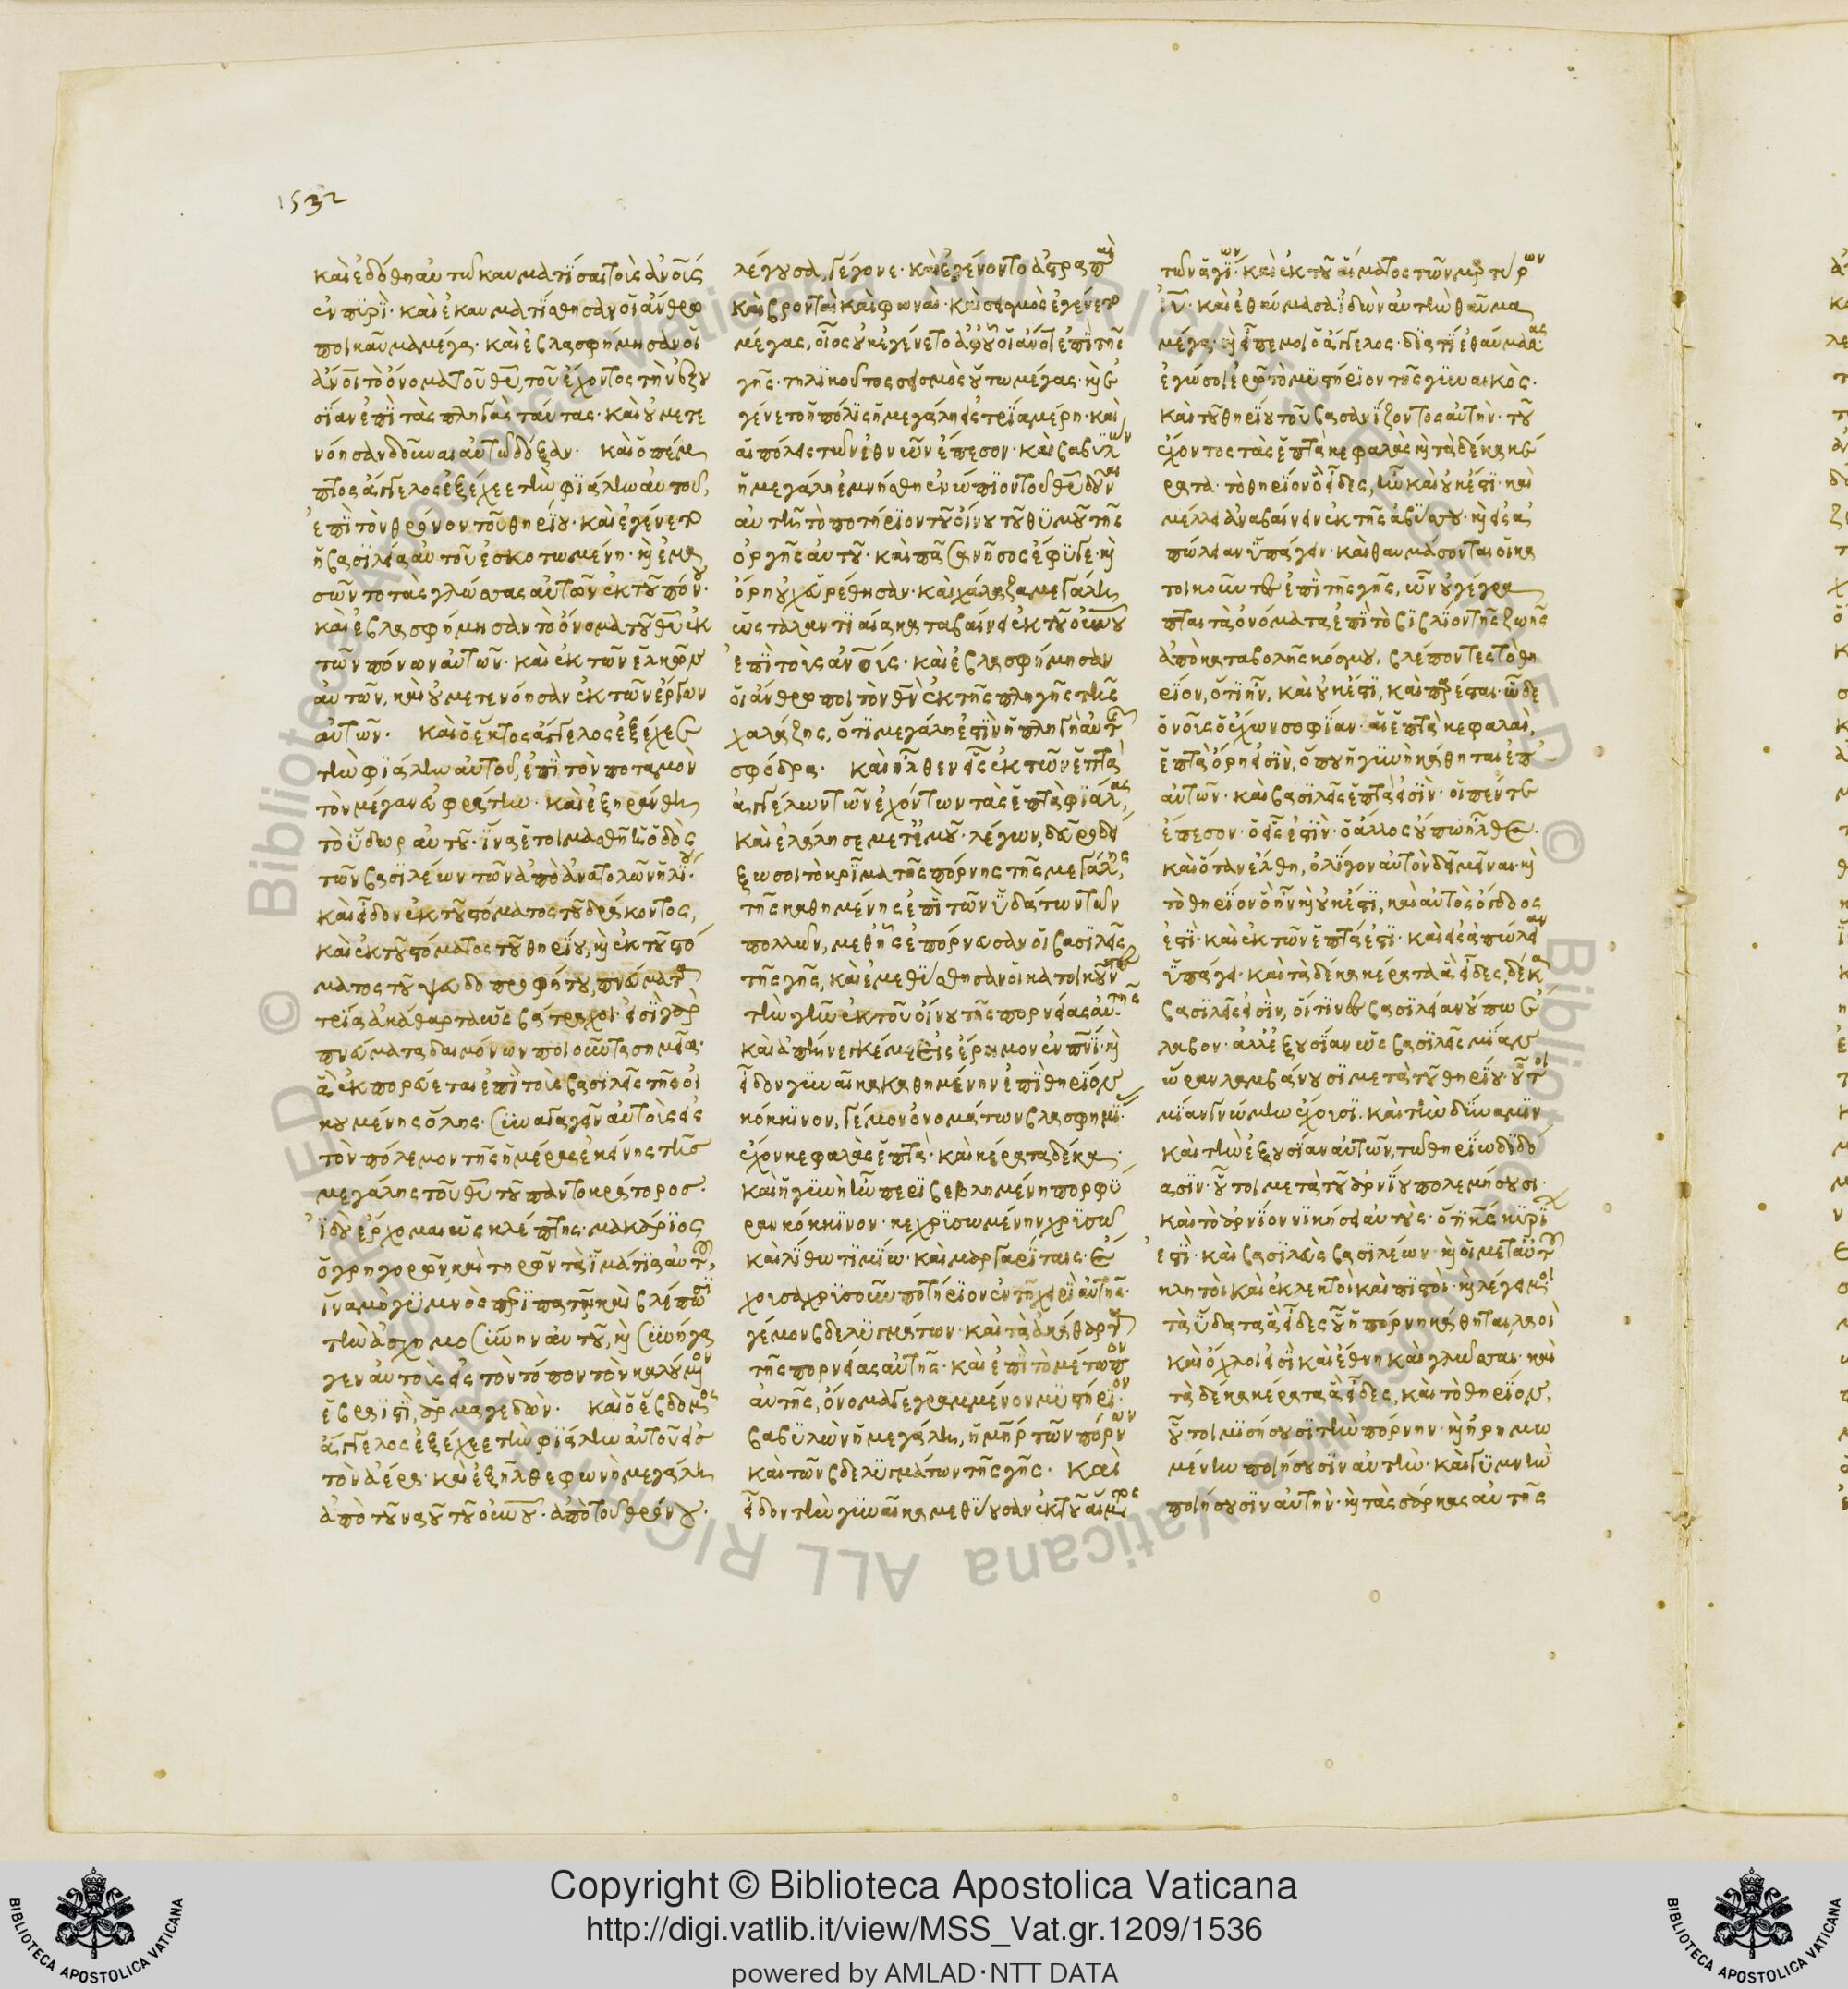 1532
καὶ ἐδόθη αὐτῶ καυματίσαι τοὺς ἀνο̅υ̅ς
ἐν πυρί· καὶ ἐκαυματίσθησαν οἱ ἄνθρω
ποι καῦμα μέγα· καὶ ἐβλασφήμησαν οἱ
ἀν̅ο̅ι τὸ ὄνομα τοῦ θ̅υ̅, τοῦ ἔχοντος τὴν ἐξου
σίαν ἐπὶ τὰς πληγὰς ταύτας· καὶ οὐ μετε
νόησαν δοῦναι αὐτῶ δόξαν. καὶ ὁ πέμ
πτος ἄγγελος ἐξέχεε τὴν φιάλην αὐτοῦ,
ἐπὶ τὸν θρόνον τοῦ θηρίου· καὶ ἐγένετο
ἡ βασιλεία αὐτοῦ ἐσκοτωμένη· κ̀ ἐμα
σῶντο τὰς γλώσσας αὐτῶν ἐκ τοῦ πόνου·
καὶ ἐβλασφήμησαν τὸ ὄνομα τοῦ θ̅υ̅ ἐκ
τῶν πόνων αὐτῶν· καὶ ἐκ τῶν ἑλκῶν
αὐτῶν, καὶ οὐ μετενόησαν ἐκ τῶν ἔργων
αὐτῶν. καὶ ὁ ἕκτος ἄγγελος ἐξέχεε
τὴν φιάλην αὐτοῦ, ἐπὶ τὸν ποταμὸν
τὸν μέγαν εὐφράτην· καὶ ἐξηράνθη
τὸ ὕδωρ αὐτοῦ· ἵνα ἑτοιμασθῆ ἡ ὁδὸς
τῶν βασιλέων τῶν ἀπὸ ἀνατολῶν ἡλίου·
καὶ εἶδον ἐκ τοῦ στόματος τοῦ δράκοντος,
καὶ ἐκ τοῦ στόματος τοῦ θηρίου, κ̀ ἐκ τοῦ στό
ματος τοῦ ψευδοπροφήτου, πνεύματα
τρία ἀκάθαρτα ὡς βάτραχοι· εἰσὶ γὰρ
πνεύματα δαιμόνων ποιοῦντα σημεῖα·
ἃ ἐκπορεύεται ἐπὶ τοὺς βασιλεῖς τῆς οἰ
κουμένης ὅλης· συναγαγεῖν αὐτοὺς εἰς
τὸν πόλεμον τῆς ἡμέρας ἐκείνης τῆς
μεγάλης τοῦ θ̅υ̅ τοῦ παντοκράτορος.
ἰδοὺ ἔρχομαι ὡς κλέπτης· μακάριος
ὁ γρηγορῶν, καὶ τηρῶν τὰ ἱμάτια αὐτοῦ,
ἵνα μὴ γυμνὸς περιπατῆ καὶ βλέπωσι
τὴν ἀσχημοσύνην αὐτοῦ, κ̀ συνήγα
γεν αὐτοὺς εἰς τὸν τόπον τὸν καλούμενον
ἑβραϊστὶ, ἁρμαγεδὼν. καὶ ὁ ἕβδομος
ἄγγελος ἐξέχεε τὴν φιάλην αὐτοῦ εἰς
τὸν ἀέρα· καὶ ἐξῆλθε φωνὴ μεγάλη
ἀπὸ τοῦ ναοῦ τοῦ ο̅υ̅ν̅ο̅υ̅· ἀπὸ τοῦ θρόνου·
λέγουσα, γέγονε· καὶ ἐγένοντο ἀστραπαὶ
καὶ βρονταὶ καὶ φωναὶ· καὶ σεισμὸς ἐγένετο
μέγας, οἷος οὐκ ἐγένετο ἀφ' οὗ οἱ ἀν̅ο̅ι ἐπὶ τῆς
γῆς· τηλικοῦτος σεισμὸς οὕτω μέγας· κ̀ ἐ
γένετο ἡ πόλις ἡ μεγάλη εἰς τρία μέρη· καὶ
αἱ πόλεις τῶν ἐθνῶν ἔπεσον· καὶ βαβυλὼν
ἡ μεγάλη ἐμνήσθη ἐνώπιον τοῦ θ̅υ̅ δοῦναι
αὐτῆ τὸ ποτήριον τοῦ οἴνου τοῦ θυμοῦ τῆς
ὀργῆς αὐτοῦ· καὶ πᾶσα νῆσος ἔφυγε· κ̀
ὄρη οὐχ εὑρέθησαν· καὶ χάλαζα μεγάλη
ὡς ταλαντιαία καταβαίνει ἐκ τοῦ ο̅υ̅ν̅ο̅υ̅
ἐπὶ τοὺς ἀν̅ο̅υ̅ς· καὶ ἐβλασφήμησαν
οἱ ἄνθρωποι τὸν θ̅ν̅ ἐκ τῆς πληγῆς τῆς
χαλάζης, ὅτι μεγάλη ἐστὶν ἡ πληγὴ αὐτῆς
σφόδρα. καὶ ἦλθεν εἷς ἐκ τῶν ἑπτὰ
ἀγγέλων τῶν ἐχόντων τὰς ἑπτὰ φιάλας,
καὶ ἐλάλησε μετ' ἐμοῦ· λέγων, δεῦρο δεί
ξω σοι τὸ κρῖμα τῆς πόρνης τῆς μεγάλης,
τῆς καθημένης ἐπὶ τῶν ὑδάτων τῶν
πολλῶν, μεθ' ἧς ἐπόρνευσαν οἱ βασιλεῖς
τῆς γῆς, καὶ ἐμεθύσθησαν οἱ κατοικοῦντες
τὴν γῆν ἐκ τοῦ οἴνου τῆς πορνείας αὐτῆς·
καὶ ἀπήνεγκέ με εἰς ἔρημον ἐν πν̅ι̅· κ̀
εἶδον γυναῖκα καθημένην ἐπὶ θηρίον
κόκκινον, γέμον ὀνομάτων βλασφημίας·
ἔχον κεφαλὰς ἑπτὰ· καὶ κέρατα δέκα·
καὶ ἡ γυνὴ ἦν περιβεβλημένη πορφύ
ραν κόκκινον· κεχρυσωμένην χρυσῶ
καὶ λίθω τιμίω· καὶ μαργαρίταις· ἔ
χουσα χρυσοῦν ποτήριον ἐν τῆ χειρὶ αὐτῆς·
γέμον βδελυγμάτων· καὶ τὰ ἀκάθαρτα
τῆς πορνείας αὐτῆς· καὶ ἐπὶ τὸ μέτωπον
αὐτῆς, ὄνομα γεγραμμένον μυστήριον·
βαβυλὼν ἡ μεγάλη, ἡ μ̅η̅ρ τῶν πορνῶν
καὶ τῶν βδελυγμάτων τῆς γῆς. καὶ
εἶδον τὴν γυναῖκα μεθύουσαν ἐκ τοῦ αἵματος
τῶν ἁγίων· καὶ ἐκ τοῦ αἵματος τῶν μαρτύρων
ἰ̅υ̅· καὶ ἐθαύμασα ἰδὼν αὐτὴν θαῦμα
μέγα· κ̀ εἶπέ μοι ὁ ἄγγελος· διατί ἐθαύμασας·
ἐγώ σοι ἐρῶ τὸ μυστήριον τῆς γυναικὸς·
καὶ τοῦ θηρίου τοῦ βαστάζοντος αὐτὴν· τοῦ
ἔχοντος τὰς ἑπτὰ κεφαλὰς κ̀ τὰ δέκα κέ
ρατα· τὸ θηρίον ὃ εἶδες, ἦν καὶ οὐκ ἔστι· καὶ
μέλλει ἀναβαίνειν ἐκ τῆς ἀβύσσου· κ̀ εἰς ἀ
πώλειαν ὑπάγειν· καὶ θαυμάσονται οἱ κα
τοικοῦντες ἐπὶ τῆς γῆς, ὧν οὐ γέγρα
πται τὰ ὀνόματα ἐπὶ τὸ βιβλίον τῆς ζωῆς
ἀπὸ καταβολῆς κόσμου, βλέποντες τὸ θη
ρίον, ὅτι ἦν, καὶ οὐκ ἔστι, καὶ πάρεσται· ὧδε
ὁ νοῦς ὁ ἔχων σοφίαν· αἱ ἑπτὰ κεφαλαὶ,
ἑπτὰ ὄρη εἰσὶν, ὅπου ἡ γυνὴ κάθηται ἐπ'
αὐτῶν· καὶ βασιλεῖς ἑπτὰ εἰσὶν· οἱ πέντε
ἔπεσον· ὁ εἷς ἐστὶν· ὁ ἄλλος οὔπω ἦλθε·
καὶ ὅταν ἔλθη, ὀλίγον αὐτὸν δεῖ μεῖναι· κ̀
τὸ θηρίον ὃ ἦν κ̀ οὐκ ἔστι, καὶ αὐτὸς ὄγδοος
ἐστὶ· καὶ ἐκ τῶν ἑπτά ἐστι· καὶ εἰς ἀπώλειαν
ὑπάγει· καὶ τὰ δέκα κέρατα ἃ εἶδες, δέκα
βασιλεῖς εἰσὶν, οἵτινες βασιλείαν οὔπω ἔ
λαβον· ἀλλ' ἐξουσίαν ὡς βασιλεῖς μίαν
ὥραν λαμβάνουσι μετὰ τοῦ θηρίου· οὗτοι
μίαν γνώμην ἔχουσι· καὶ τὴν δύναμιν
καὶ τὴν ἐξουσίαν αὐτῶν, τῶ θηρίω διδό
ασιν· οὗτοι μετὰ τοῦ ἀρνίου πολεμήσουσι·
καὶ τὸ ἀρνίον νικήσει αὐτοὺς· ὅτι κ̅ς̅ κυρίων
ἐστὶ· καὶ βασιλεὺς βασιλέων· κ̀ οἱ μετ' αὐτοῦ
κλητοὶ καὶ ἐκλεκτοὶ καὶ πιστοὶ· κ̀ λέγει μοι
τὰ ὕδατα ἃ εἶδες οὗ ἡ πόρνη κάθηται, λαοὶ
καὶ ὄχλοι εἰσὶ καὶ ἔθνη καὶ γλῶσσαι· καὶ
τὰ δέκα κέρατα ἃ εἶδες, καὶ τὸ θηρίον,
οὗτοι μισήσουσι τὴν πόρνην· κ̀ ἠρημω
μένην ποιήσουσιν αὐτὴν· καὶ γυμνὴν
ποιήσουσιν αὐτὴν· κ̀ τὰς σάρκας αὐτῆς
Copyright © Biblioteca Apostolica Vaticana
http://digi.vatlib.it/view/MSS_Vat.gr.1209/1536
powered by AMLAD·NTT DATA
BIBLIOTECA APOSTOLICA VATICANA
BIBLIOTECA APOSTOLICA VATICANA
© Biblioteca Apostolica Vaticana ALL RIGHTS RESERVED
© Biblioteca Apostolica Vaticana ALL RIGHTS RESERVED